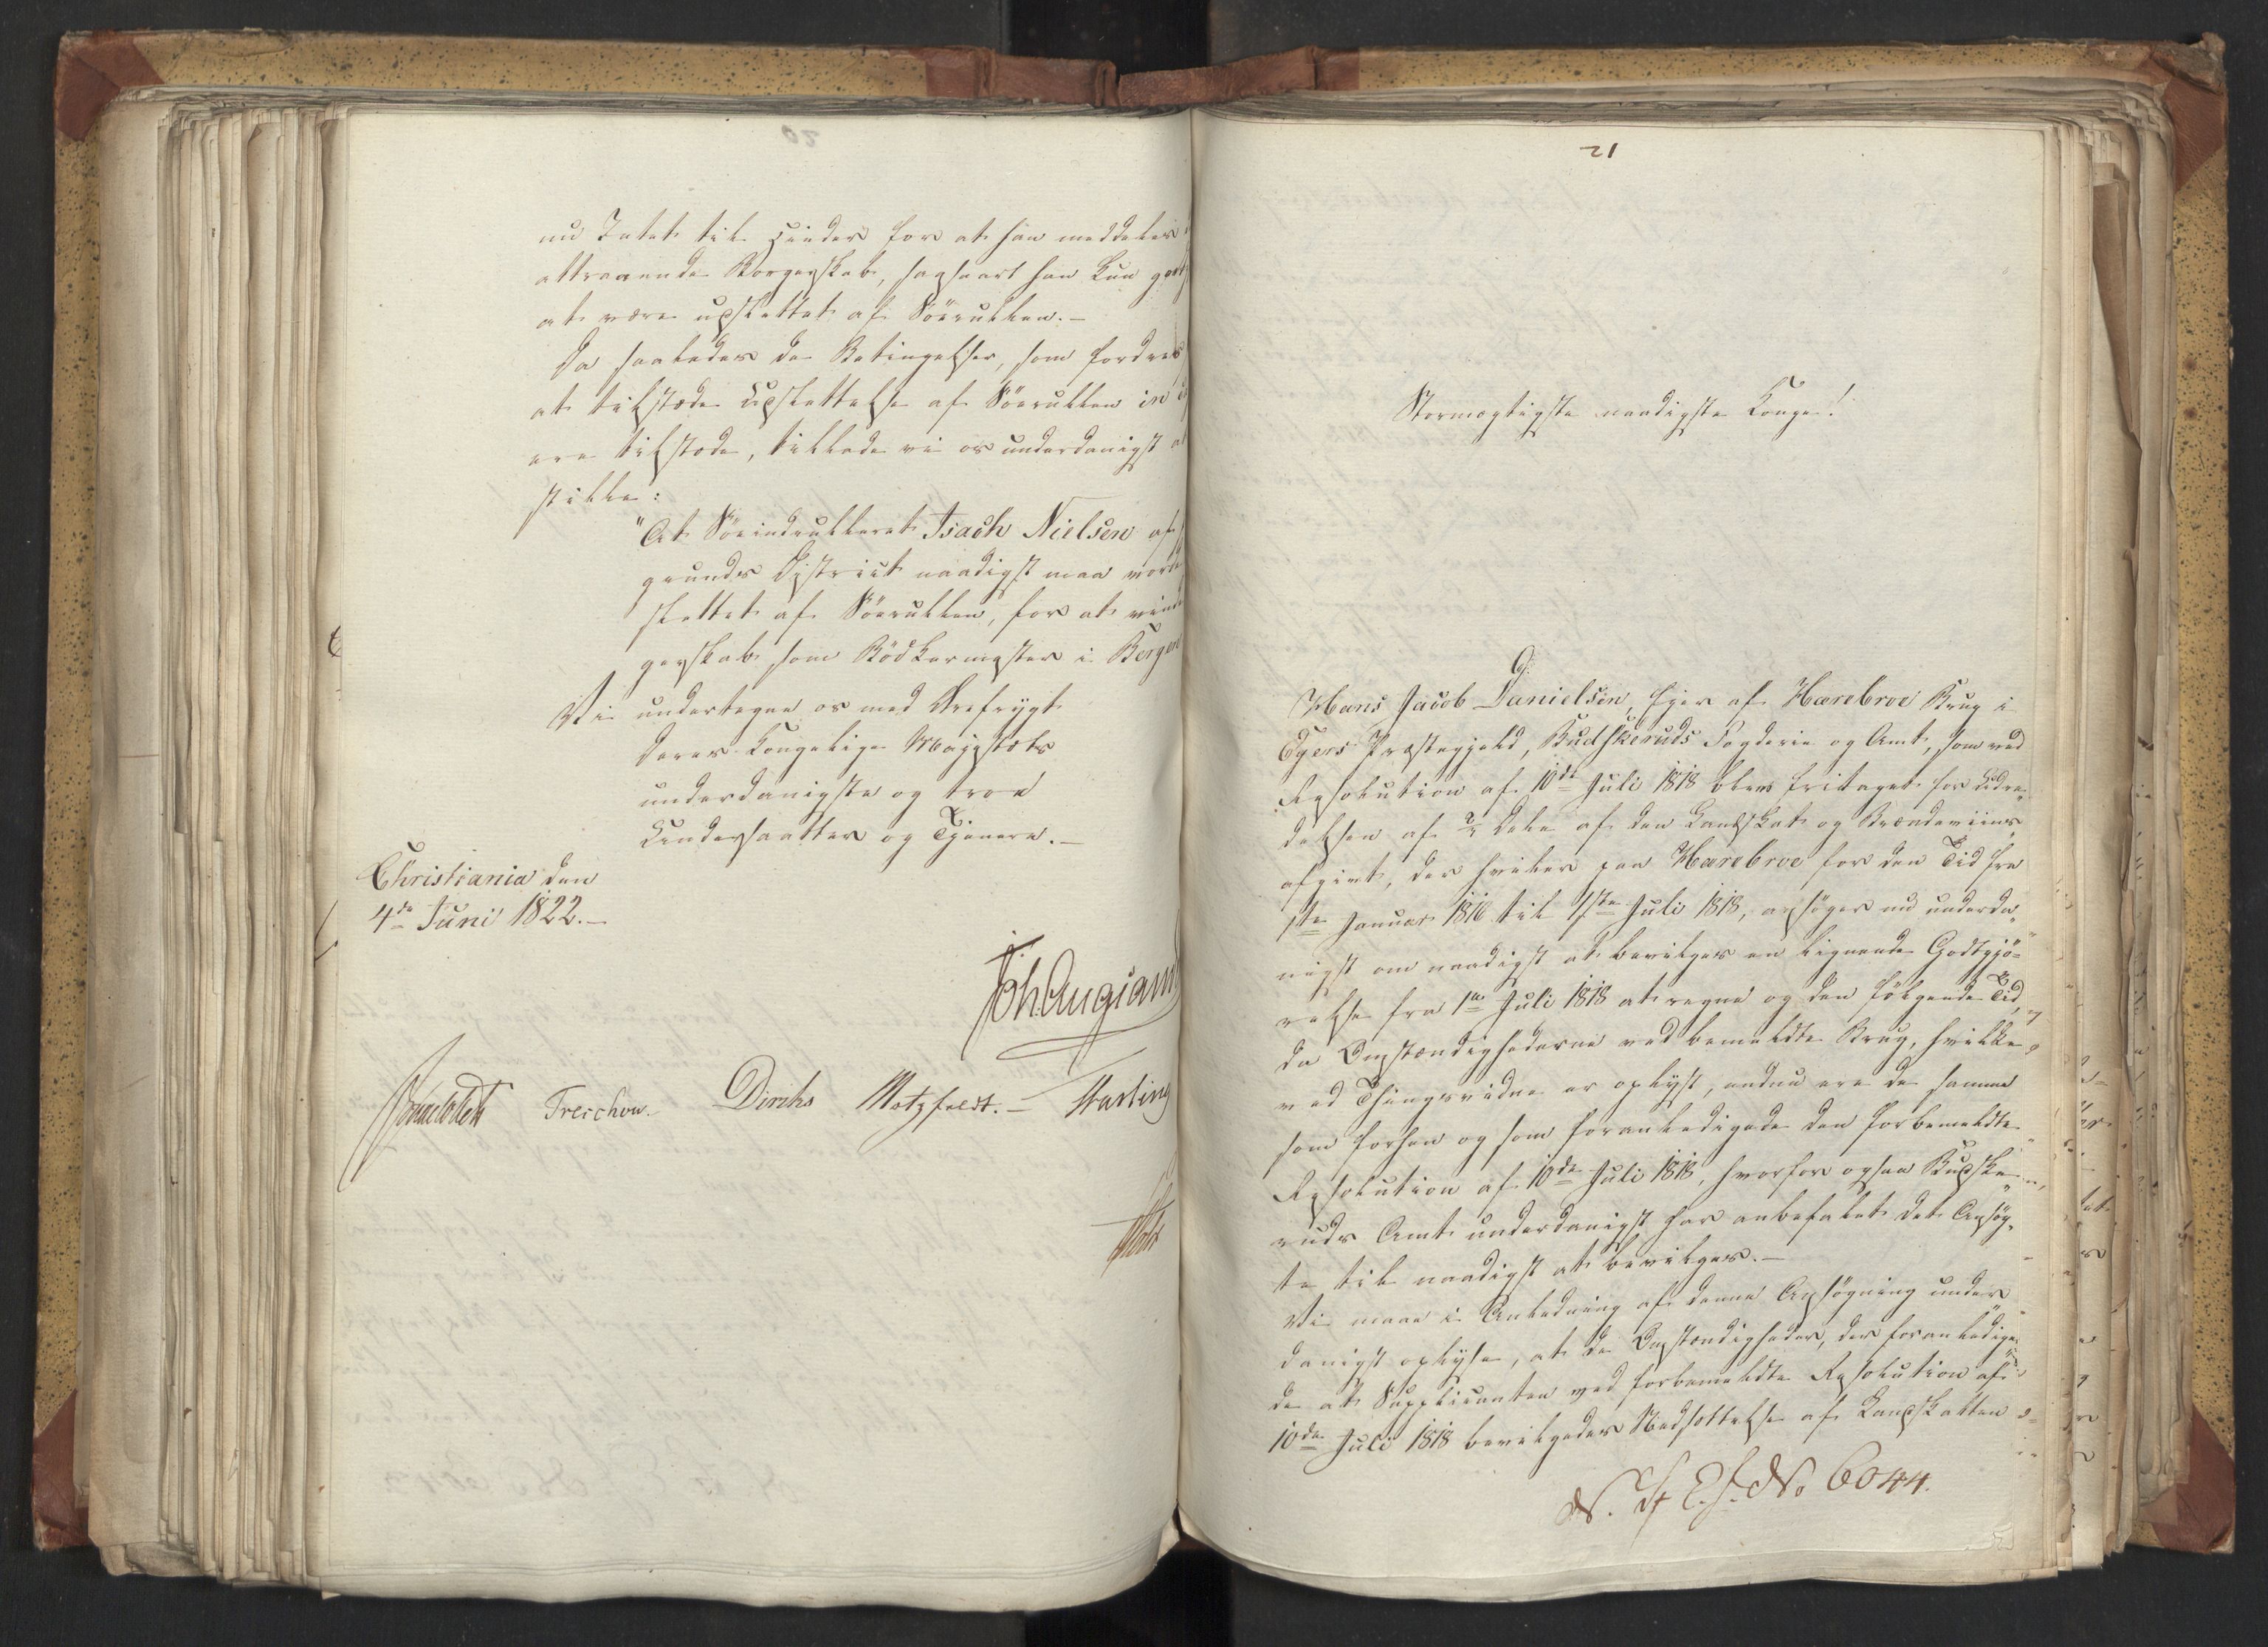 20
nu Intet til Hinder for at han meddeles
attraaende Borgerskab, saasnart han kun
at være udslettet af Söerullen.—
Da saaledes de Betingelser, som fordres
at tilstæde Udslettelse af Söerullen in
ere tilstæde, tillade vi os underdanigst
stille:
"At Söeindrulleret Isach Nielsen af
grunds District naadigst maa vorde
slettet af Söerullen, for at vinde
gerskab som Bödkermester i Bergen
Vi undertegne os med Ærefrygt
Deres Kongelige Majestæts
underdanigste og troe
Undersaatter og Tjenere.—
Christiania den
4de Juni 1822.—
Treschow. Diriks Motzfeldt.—
21
Stormægtigste naadigste Konge!
Hans Jacob Danielsen, Ejer af Harebroe Brug i
Egers Præstegjeld, Budskeruds Fogderie og Amt, som ved
Resolution af 10de Juli 1818 blev fritaget for Udre„
delsen af Dele af den Landskat og Brændeviins
afgivt, der hviler paa Harebroe for den Tid fra
1ste Januar 1816 til 1ste Juli 1818, ansöger nu underda„
nigst om naadigst at bevilges en lignende Godtgjö„
relse fra 1ste Juli 1818 at regne og den fölgende Tid,
da Omstændighederne ved bemeldte Brug, hvilke
ved Thingsvidne er oplyst, endnu ere de samme
som forhen og som foranledigede den forbemeldte
Resolution af 10de Juli 1818, hvorfor ogsaa Buske„
ruds Amt underdanigst har anbefalet det Ansög„
te til naadigst at bevilges.—
Vi maae i Anledning af denne Ansögning under„
danigst oplyse, at de Omstændigheder, der foranledige„
de at Supplicanten ved forbemeldte Resolution af
10de Juli 1818 bevilgedes Nedsættelse af Landskatten
No 6044.